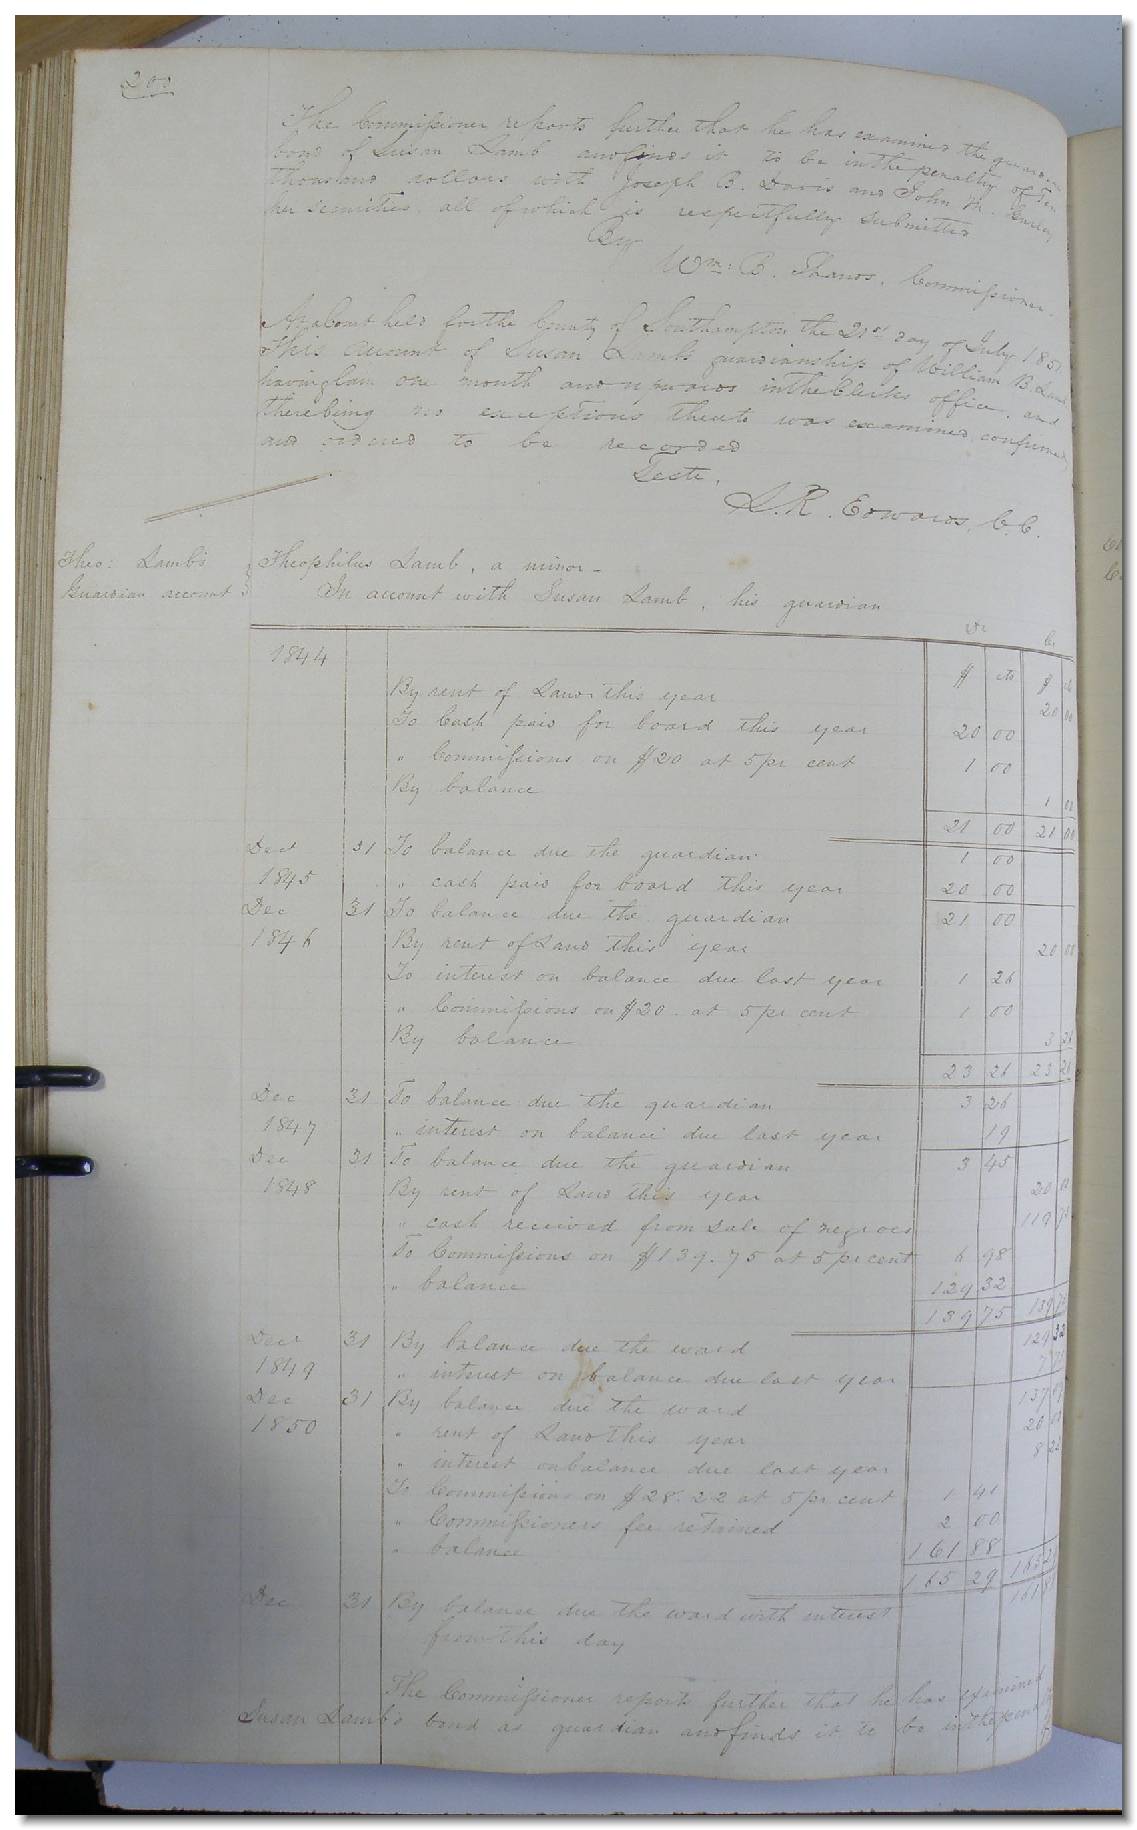 200
The Commissioner reports further that he has examined the guardian
bond of Susan Lamb and finds it to be in the penalty of Ten
thousand dollars with Joseph B. Davis and John M. Gurley
her securities. all of which is respectfully submitted
By
Wm: B. Shands, Commissioner.
At a Court held for the County of Southampton the 21st day of July 1851.
This account of Susan Lamb's guardianship of William B. Lamb
having lain one month and upwards in the Clerks office, and
there being no exceptions thereto was examined, confirmed
and ordered to be recorded
Teste,
L. R. Edwards, C. C.
Theo: Lamb's Theophilus Lamb, a minor -
Guardian account In account with Susan Lamb, his guardian
Dr Cr
1844 $ cts $ cts
By rent of Land this year 20 00
To Cash paid for board this year 20 00
" Commissions on $20 at 5 pr cent 1 00
By balance 1 00
21 00 21 00
Decr 31 To balance due the guardian 1 00
1845 " cash paid for board this year 20 00
Dec 31 To balance due the guardian 21 00
1846 By rent of Land this year 20 00
To interest on balance due last year 1 26
" Commissions on $20. at 5 pr cent 1 00
By balance 3 26
23 26 23 26
Dec 31 To balance due the guardian 3 26
1847 " interest on balance due last year 19
Dec 31 To balance due the guardian 3 45
1848 By rent of Land this year 20 00
" cash received from sale of negroes 119 75
To Commissions on $139.75 at 5 pr cent 6 98
" balance 129 32
139 75 139 75
Decr 31 By balance due the ward 129 32
1849 " interest on balance due last year 7
Dec 31 By balance due the ward 137
1850 " rent of Land this year 20 00
" interest on balance due last year 8 22
To Commissions on $28.22 at 5 pr cent 1 41
" Commissioners fee retained 2 00
" balance 161 88
165 29 165 29
Dec 31 By balance due the ward with interest 161 88
from this day
The Commissioner reports further that he has examined
Susan Lamb's bond as guardian and finds it to be in the